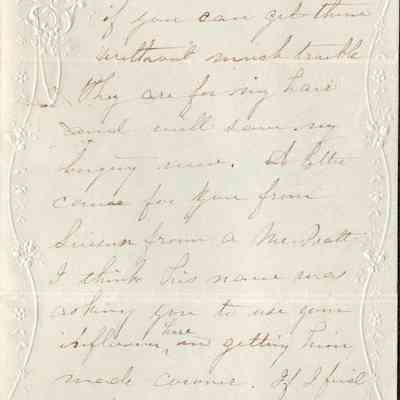 if you can get them
without much trouble
They are for my hair
and will save my
buying new. A letter
came for you from
Suisun from a Mr. Pratt
I think his name was
asking you to use your
influence here in getting him
made coroner. If I find